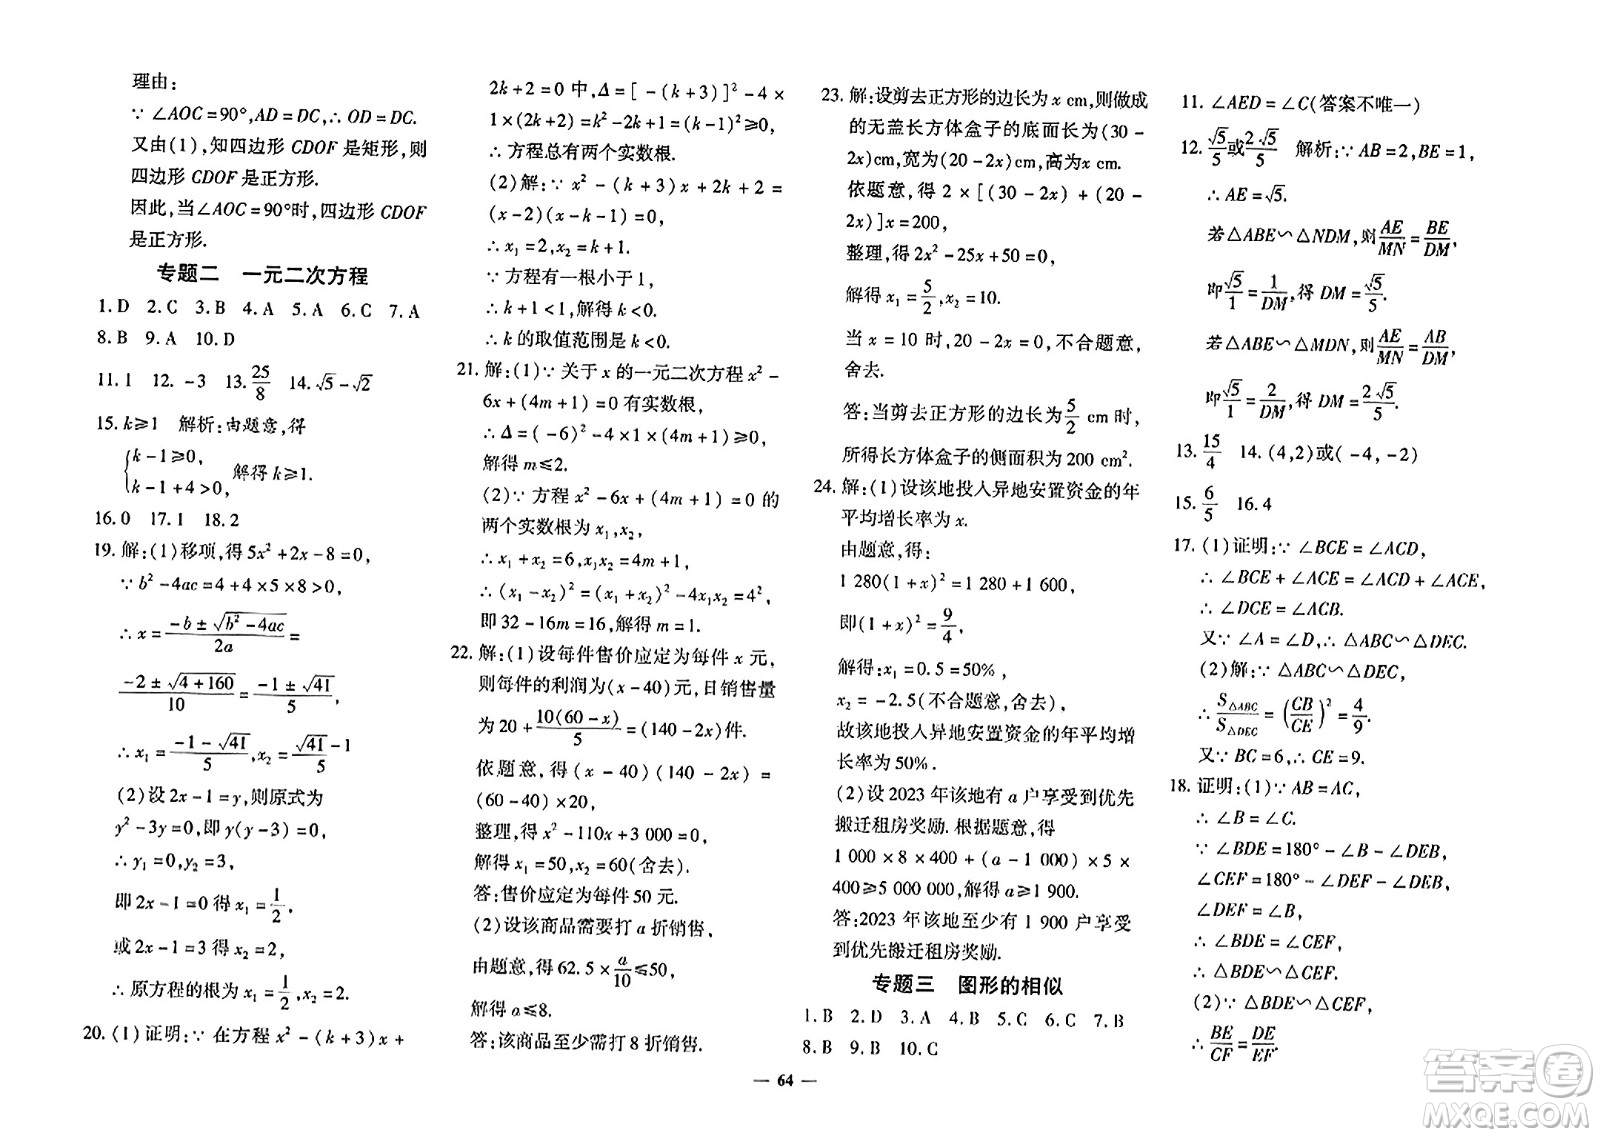 理由:
∵ ∠AOC=90°,AD=DC,∴ OD=DC.
又由(1),知四边形 CDOF 是矩形,则
四边形 CDOF 是正方形.
因此,当∠AOC=90°时,四边形 CDOF
是正方形.
专题二 一元二次方程
1. D 2. C 3. B 4. A 5. A 6. C 7. A
8. B 9. A 10. D
11. 1 12. -3 13. 25/8 14. √5-√2
15. k≥1 解析:由题意,得
{k-1≥0,
k-1+4>0, 解得 k≥1.
16. 0 17. 1 18. 2
19. 解:(1)移项,得 5x²+2x-8=0,
∵ b²-4ac=4+4×5×8>0,
∴ x=(-b±√(b²-4ac))/2a=
(-2±√(4+160))/10=(-1±√41)/5,
∴ x₁=(-1-√41)/5,x₂=(√41-1)/5
(2)设 2x-1=y,则原式为
y²-3y=0,即 y(y-3)=0,
∴ y₁=0,y₂=3,
即 2x-1=0 得 x₁=1/2,
或 2x-1=3 得 x₂=2,
∴ 原方程的根为 x₁=1/2,x₂=2.
20. (1)证明:∵ 在方程 x²-(k+3)x+
2k+2=0 中,Δ=[-(k+3)]²-4×
1×(2k+2)=k²-2k+1=(k-1)²≥0,
∴ 方程总有两个实数根.
(2)解:∵ x²-(k+3)x+2k+2=
(x-2)(x-k-1)=0,
∴ x₁=2,x₂=k+1.
∵ 方程有一根小于 1,
∴ k+1<1,解得 k<0.
∴ k 的取值范围是 k<0.
21. 解:(1)∵ 关于 x 的一元二次方程 x²-
6x+(4m+1)=0 有实数根,
∴ Δ=(-6)²-4×1×(4m+1)≥0,
解得 m≤2.
(2)∵ 方程 x²-6x+(4m+1)=0 的
两个实数根为 x₁,x₂,
∴ x₁+x₂=6,x₁x₂=4m+1,
∴ (x₁-x₂)²=(x₁+x₂)²-4x₁x₂=4²,
即 32-16m=16,解得 m=1.
22. 解:(1)设每件售价应定为每件 x 元,
则每件的利润为(x-40)元,日销售量
为 20+10(60-x)/5=(140-2x)件.
依题意,得(x-40)(140-2x)=
(60-40)×20,
整理,得 x²-110x+3 000=0,
解得 x₁=50,x₂=60(舍去).
答:售价应定为每件 50 元.
(2)设该商品需要打 a 折销售,
由题意,得 62.5×a/10≤50,
解得 a≤8.
答:该商品至少需打 8 折销售.
23. 解:设剪去正方形的边长为 x cm,则做成
的无盖长方体盒子的底面长为(30-
2x)cm,宽为(20-2x)cm,高为x cm.
依题意,得 2×[(30-2x)+(20-
2x)]x=200,
整理,得 2x²-25x+50=0,
解得 x₁=5/2,x₂=10.
当 x=10 时,20-2x=0,不合题意,
舍去.
答:当剪去正方形的边长为5/2 cm 时,
所得长方体盒子的侧面积为 200 cm².
24. 解:(1)设该地投入异地安置资金的年
平均增长率为 x.
由题意,得:
1 280(1+x)²=1 280+1 600,
即(1+x)²=9/4,
解得:x₁=0.5=50%,
x₂=-2.5(不合题意,舍去),
故该地投入异地安置资金的年平均增
长率为 50%.
(2)设 2023 年该地有 a 户享受到优先
搬迁租房奖励. 根据题意,得
1 000×8×400+(a-1 000)×5×
400≥5 000 000,解得 a≥1 900.
答:2023 年该地至少有 1 900 户享受
到优先搬迁租房奖励.
专题三 图形的相似
1. B 2. D 3. A 4. B 5. C 6. C 7. B
8. B 9. B 10. C
11. ∠AED=∠C(答案不唯一)
12. √5/5或2√5/5 解析:∵ AB=2,BE=1,
∴ AE=√5.
若△ABE∽△NDM,则AE/MN=BE/DM,
即√5/1=1/DM,得 DM=√5/5.
若△ABE∽△MDN,则AE/MN=AB/DM,
即√5/1=2/DM,得 DM=2√5/5.
13. 15/4 14. (4,2)或(-4,-2)
15. 6/5 16. 4
17. (1)证明:∵ ∠BCE=∠ACD,
∴ ∠BCE+∠ACE=∠ACD+∠ACE,
∴ ∠DCE=∠ACB.
又∵ ∠A=∠D,∴ △ABC∽△DEC.
(2)解:∵ △ABC∽△DEC,
∴ S△ABC/S△DEC=(CB/CE)²=4/9.
又∵ BC=6,∴ CE=9.
18. 证明:(1)∵ AB=AC,
∴ ∠B=∠C.
∵ ∠BDE=180°-∠B-∠DEB,
∠CEF=180°-∠DEF-∠DEB,
∠DEF=∠B,
∴ ∠BDE=∠CEF,
∴ △BDE∽△CEF.
(2)∵ △BDE∽△CEF,
∴ BE/CF=DE/EF.
— 64 —
答案圈
MXQE.COM